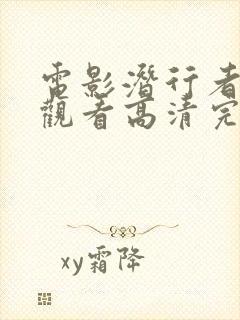 電影潛行者
觀看高清完
xy霜降